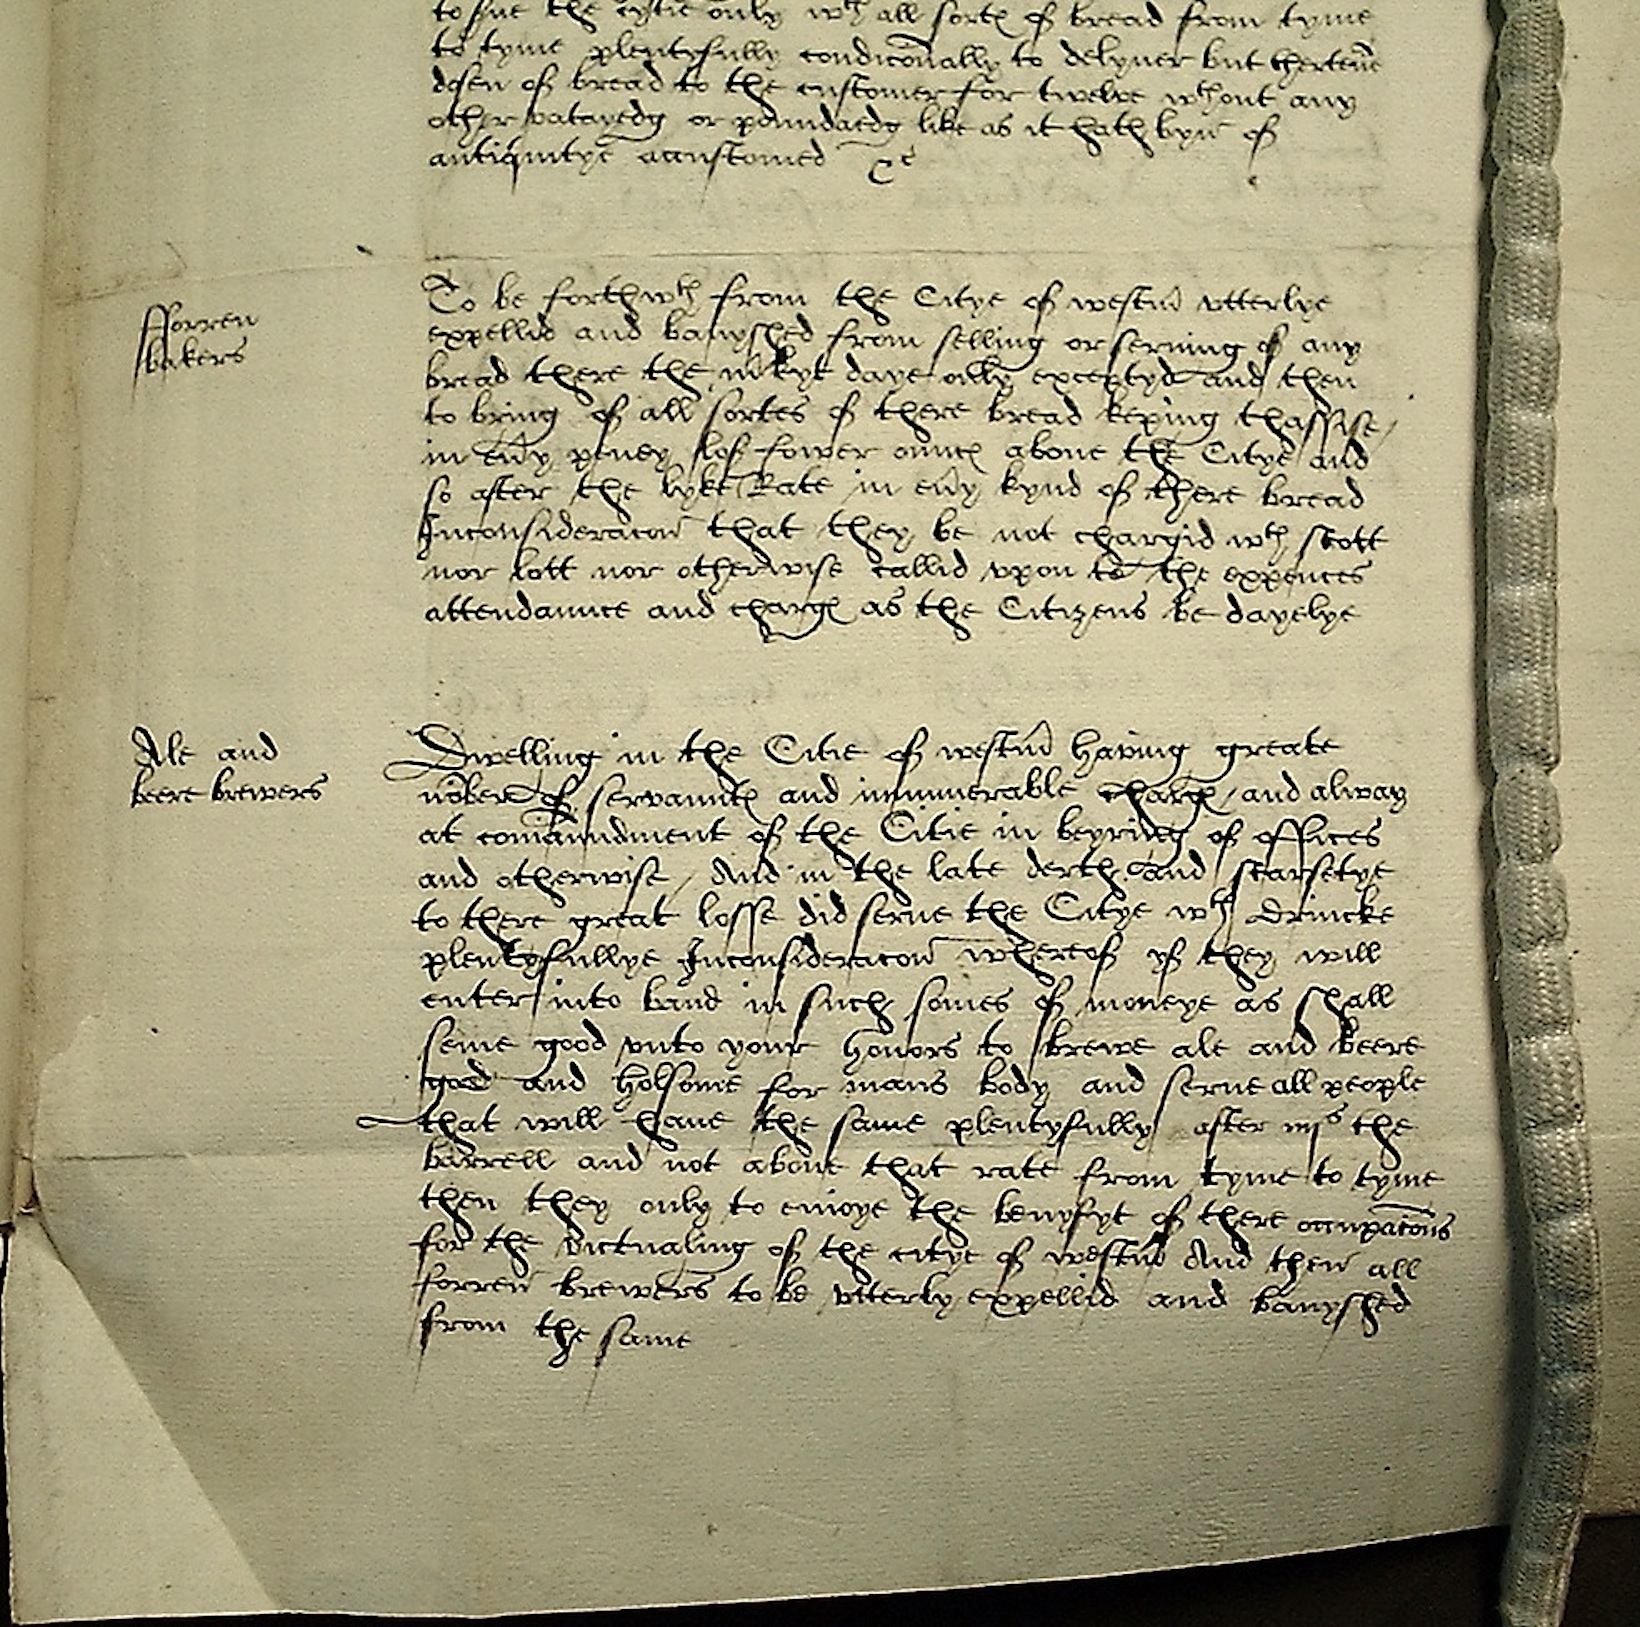 to sue the cytie only wth all sortꝭ of bread from tyme
to tyme plentyfully condic̃onally to delyuer but therten̄e
dosen of bread to the customer for twelve wthout any
other vatayedg or poundaedg like as it hath byn̄ of
antiquitye accustomed &c
Fforren
bakers
To be forthwth from the Citye of westm̄ vtterlye
expellid and banyshed from selling or seruing of any
bread there the m̃kyt daye only exceptyd and then
to bring of all sortes of there bread keping thassise /
in eūy peney lof fower ouncꝭ aboue the Citye and
so after the lyke Rate in eūy kynd of there bread
Inconsideracon̄ that they be not chargid wth scott
nor lott nor otherwise callid vpon to the expences
attendaunce and chargꝭ as the Citizens be dayelye
Ale and
beere brewers
Dwelling in the Citie of westm̄ having greate
nōber of servauntꝭ and innumerable chargꝭ / and alway
at com̄aundment of the Citie in beyring of offices
and otherwise / And in the late derth and scarsetye
to there great losse did serue the Citye wth Drincke
plentyfullye Inconsideracon̄ whereof yf they will
enter into band in such som̄es of moneye as shall
seme good vnto your honors to brewe ale and beere
good and holsome for mans body and serue all people
that will haue the same plentyfully after iiijs the
barrell and not aboue that rate from tyme to tyme
then they only to enioye the benyfyt of there occupac̃ons
for the victualing of the citye of westm̄ And then̄ all
forren̄ brewers to be vtterly expellid and banyshed
from the same